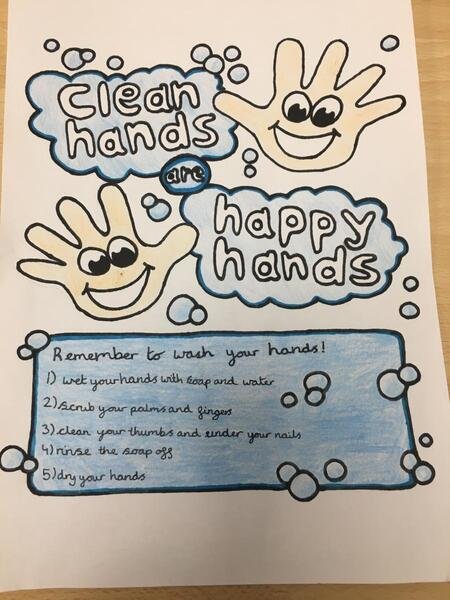 clean
hands
are
happy
hands
Remember to wash your hands!
1) wet your hands with soap and water
2) scrub your palms and fingers
3) clean your thumbs and under your nails
4) rinse the soap off
5) dry your hands